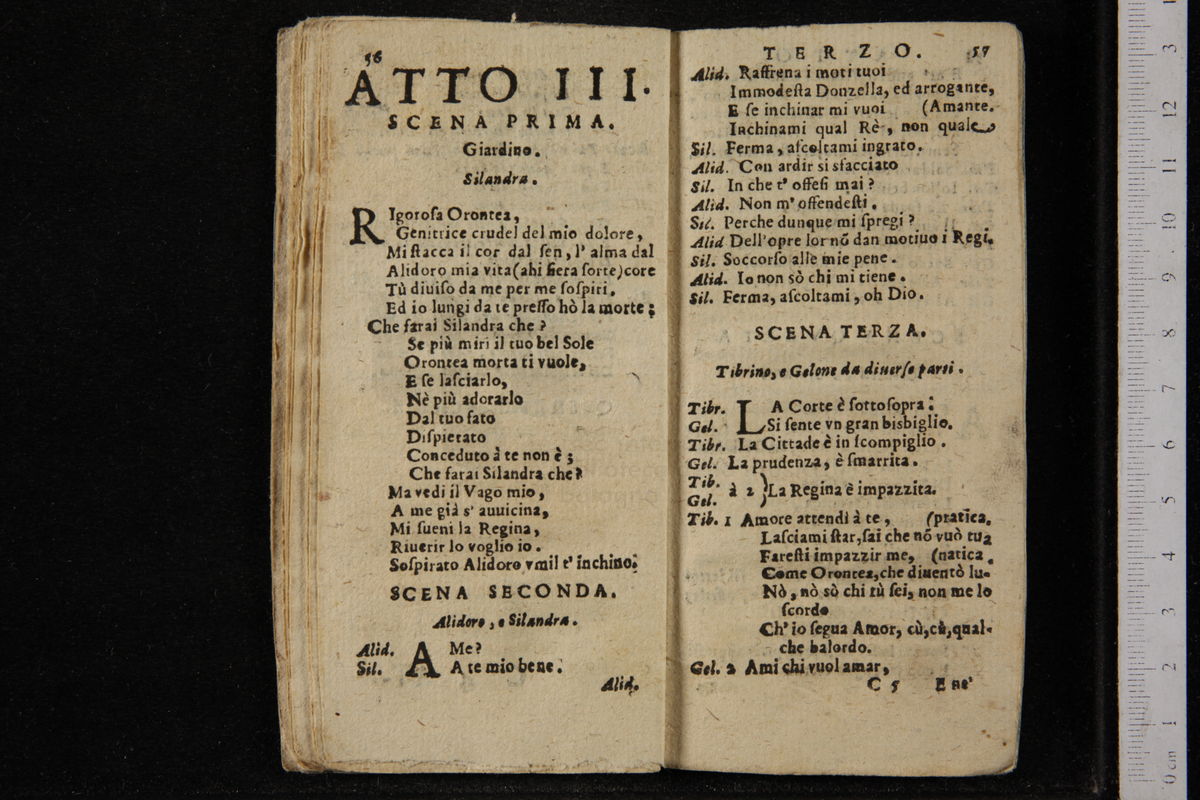 56
ATTO III.
SCENA PRIMA.
Giardino.
Silandra.
RIgorosa Orontea,
Genitrice crudel del mio dolore,
Mi ſtacca il cor dal ſen, l' alma dal
Alidoro mia vita (ahi fiera ſorte) core
Tù diuiſo da me per me ſoſpiri,
Ed io lungi da te preſſo hò la morte;
Che farai Silandra che?
Se più miri il tuo bel Sole
Orontea morta ti vuole,
E ſe laſciarlo,
Nè più adorarlo
Dal tuo fato
Diſpietato
Conceduto à te non è;
Che farai Silandra che?
Ma vedi il Vago mio,
A me già s' auuicina,
Mi ſueni la Regina,
Riuerir lo voglio io.
Soſpirato Alidoro vmil t' inchino.
SCENA SECONDA.
Alidoro, e Silandra.
Alid. A Me?
Sil. A te mio bene.
Alid.
TERZO. 57
Alid. Raffrena i moti tuoi
Immodeſta Donzella, ed arrogante,
E ſe inchinar mi vuoi (Amante.
Inchinami qual Rè, non quale
Sil. Ferma, aſcoltami ingrato.
Alid. Con ardir sì sfacciato
Sil. In che t' offeſi mai?
Alid. Non m' offendeſti.
Sil. Perche dunque mi ſpregi?
Alid Dell'opre lor nõ dan motiuo i Regi.
Sil. Soccorſo alle mie pene.
Alid. Io non sò chi mi tiene.
Sil. Ferma, aſcoltami, oh Dio.
SCENA TERZA.
Tibrino, e Gelone da diuerſe parti.
Tibr. LA Corte è ſottoſopra:
Gel. Si ſente vn gran bisbiglio.
Tibr. La Cittade è in ſcompiglio.
Gel. La prudenza, è ſmarrita.
Tib. Gel. à 2 }La Regina è impazzita.
Tib. 1 Amore attendi à te, (pratica,
Laſciami ſtar, ſai che nõ vuò tua
Fareſti impazzir me, (natica.
Come Orontea, che diuentò lu-
Nò, nò sò chi tù ſei, non me lo
ſcordo
Ch' io ſegua Amor, cù, cù, qual-
che balordo.
Gel. 2 Ami chi vuol amar,
C 5 E ne'